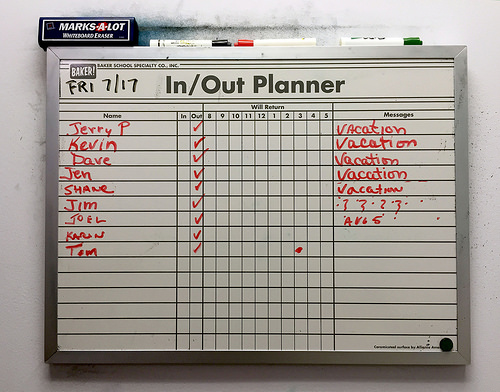 MARKS-A-LOT
WHITEBOARD ERASER
BAKER! BAKER SCHOOL SPECIALTY CO., INC.
FRI 7/17 In/Out Planner
Will Return
Name In Out 8 9 10 11 12 1 2 3 4 5 Messages
Jerry P ✓ VACATION
Kevin ✓ Vacation
Dave ✓ Vacation
Jen ✓ Vacation
SHANE ✓ Vacation
Jim ✓ ? ? ? ?
JOEL ✓ AUG 5
KAREN ✓
Tom ✓
Ceramicsteel surface by Alliance